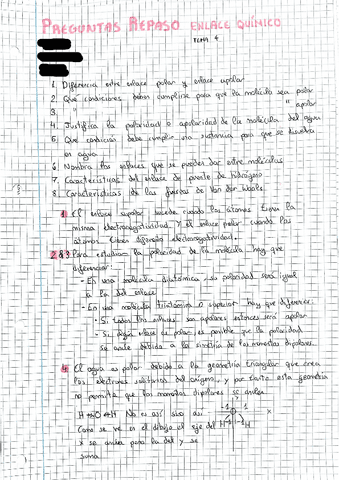 PREGUNTAS REPASO ENLACE QUÍMICO
TEMA 4
1. Diferencia entre enlace polar y enlace apolar
2. Qué condiciones deben cumplirse para que la molécula sea polar
3. " apolar
4. Justifica la polaridad o apolaridad de la molécula del agua
5. Qué condición debe cumplir una sustancia para que se disuelva
en agua
6. Nombra los enlaces que se pueden dar entre moléculas
7. Características del enlace de puente de hidrógeno
8. Características de las fuerzas de Van der Waals
1 El enlace apolar sucede cuando los átomos tienen la
misma electronegatividad y el enlace polar cuando los
átomos tienen diferente electronegatividad.
2 y 3 Para estudiar la polaridad de la molécula hay que
diferenciar:
- En una molécula diatómica su polaridad será igual
a la del enlace
- En una molécula triatómica o superior hay que diferenciar:
· Si todos los enlaces son apolares entonces será apolar
· Si algún enlace es polar, es posible que la polaridad
se anule debido a la simetría de los momentos dipolares.
4 El agua es polar debido a la geometría triangular que crea
los electrones solitarios del oxígeno, y por tanto esta geometría
no permite que los momentos dipolares se anulen
H O H No es así sino así
Como se ve en el dibujo el eje del
x se anula pero la del y se
suma